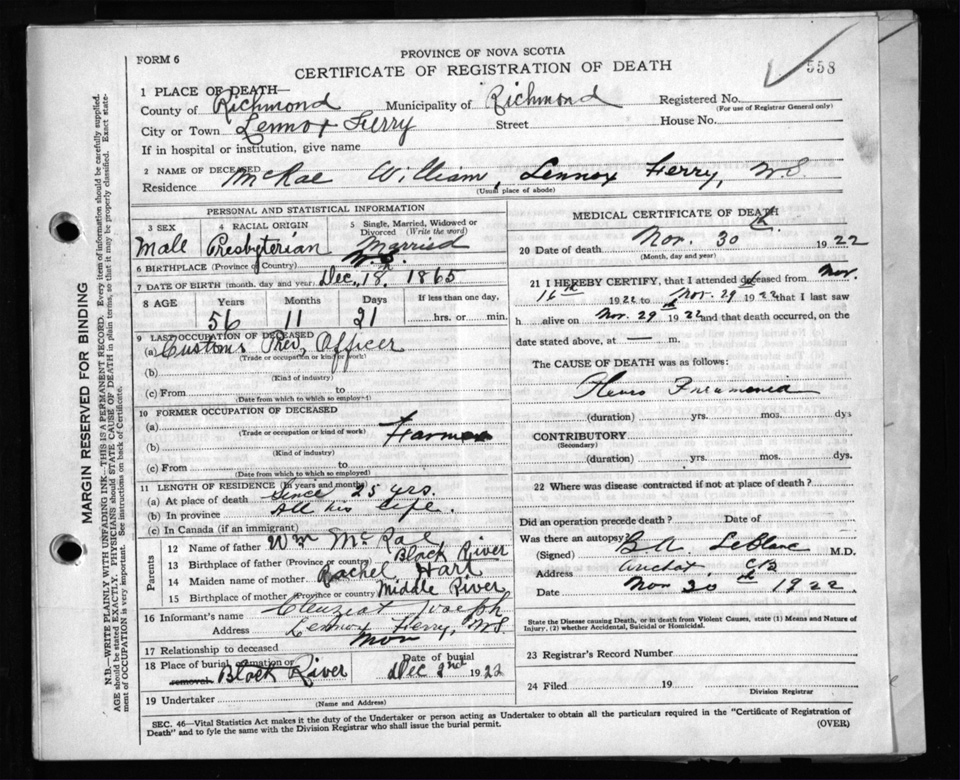 PROVINCE OF NOVA SCOTIA
FORM 6
CERTIFICATE OF REGISTRATION OF DEATH
558
1 PLACE OF DEATH—
County of Richmond Municipality of Richmond Registered No.
(For use of Registrar General only)
City or Town Lennox Ferry Street House No.
If in hospital or institution, give name
2 NAME OF DECEASED McRae William, Lennox Ferry, N.S.
Residence (Usual place of abode)
PERSONAL AND STATISTICAL INFORMATION
3 SEX 4 RACIAL ORIGIN 5 Single, Married, Widowed or Divorced (Write the word)
Male Presbyterian Married
6 BIRTHPLACE (Province or Country) N.S.
7 DATE OF BIRTH (month, day and year) Dec. 18th 1865
8 AGE Years Months Days If less than one day,
56 11 21 hrs. or min.
9 LAST OCCUPATION OF DECEASED
(a) Customs Prev. Officer
(Trade or occupation or kind of work)
(b)
(Kind of industry)
(c) From to
(Date from which to which so employed)
10 FORMER OCCUPATION OF DECEASED
(a) Farmer
(Trade or occupation or kind of work)
(b)
(Kind of industry)
(c) From to
(Date from which to which so employed)
11 LENGTH OF RESIDENCE (in years and months)
(a) At place of death Since 25 yrs.
(b) In province All his life.
(c) In Canada (if an immigrant)
Parents
12 Name of father Wm McRae
13 Birthplace of father (Province or country) Black River
14 Maiden name of mother Rachel Hart
15 Birthplace of mother (Province or country) Middle River
16 Informant's name Joseph
Address Lennox Ferry, N.S.
17 Relationship to deceased
18 Place of burial, cremation or removal Black River Date of burial Dec 2nd 1922
19 Undertaker
(Name and Address)
MEDICAL CERTIFICATE OF DEATH
20 Date of death Nov. 30th 1922
(Month, day and year)
21 I HEREBY CERTIFY, that I attended deceased from Nov.
16th 1922 to Nov. 29th 1922 that I last saw
h alive on Nov. 29 1922 and that death occurred, on the
date stated above, at — m.
The CAUSE OF DEATH was as follows:
Pleuro Pneumonia
(duration) yrs. mos. dys
CONTRIBUTORY
(Secondary)
(duration) yrs. mos. dys.
22 Where was disease contracted if not at place of death?
Did an operation precede death? Date of
Was there an autopsy?
(Signed) B.A. LeBlanc M.D.
Address Arichat CB
Date Nov 30th 1922
State the Disease causing Death, or in death from Violent Causes, state (1) Means and Nature of
Injury, (2) whether Accidental, Suicidal or Homicidal.
23 Registrar's Record Number
24 Filed 19
Division Registrar
SEC. 46—Vital Statistics Act makes it the duty of the Undertaker or person acting as Undertaker to obtain all the particulars required in the "Certificate of Registration of
Death" and to fyle the same with the Division Registrar who shall issue the burial permit. (OVER)
MARGIN RESERVED FOR BINDING
N.B.—WRITE PLAINLY WITH UNFADING INK—THIS IS A PERMANENT RECORD. Every item of information should be carefully supplied.
AGE should be stated EXACTLY. PHYSICIANS should STATE CAUSE OF DEATH in plain terms, so that it may be properly classified. Exact statement of OCCUPATION is very important. See instructions on back of Certificate.